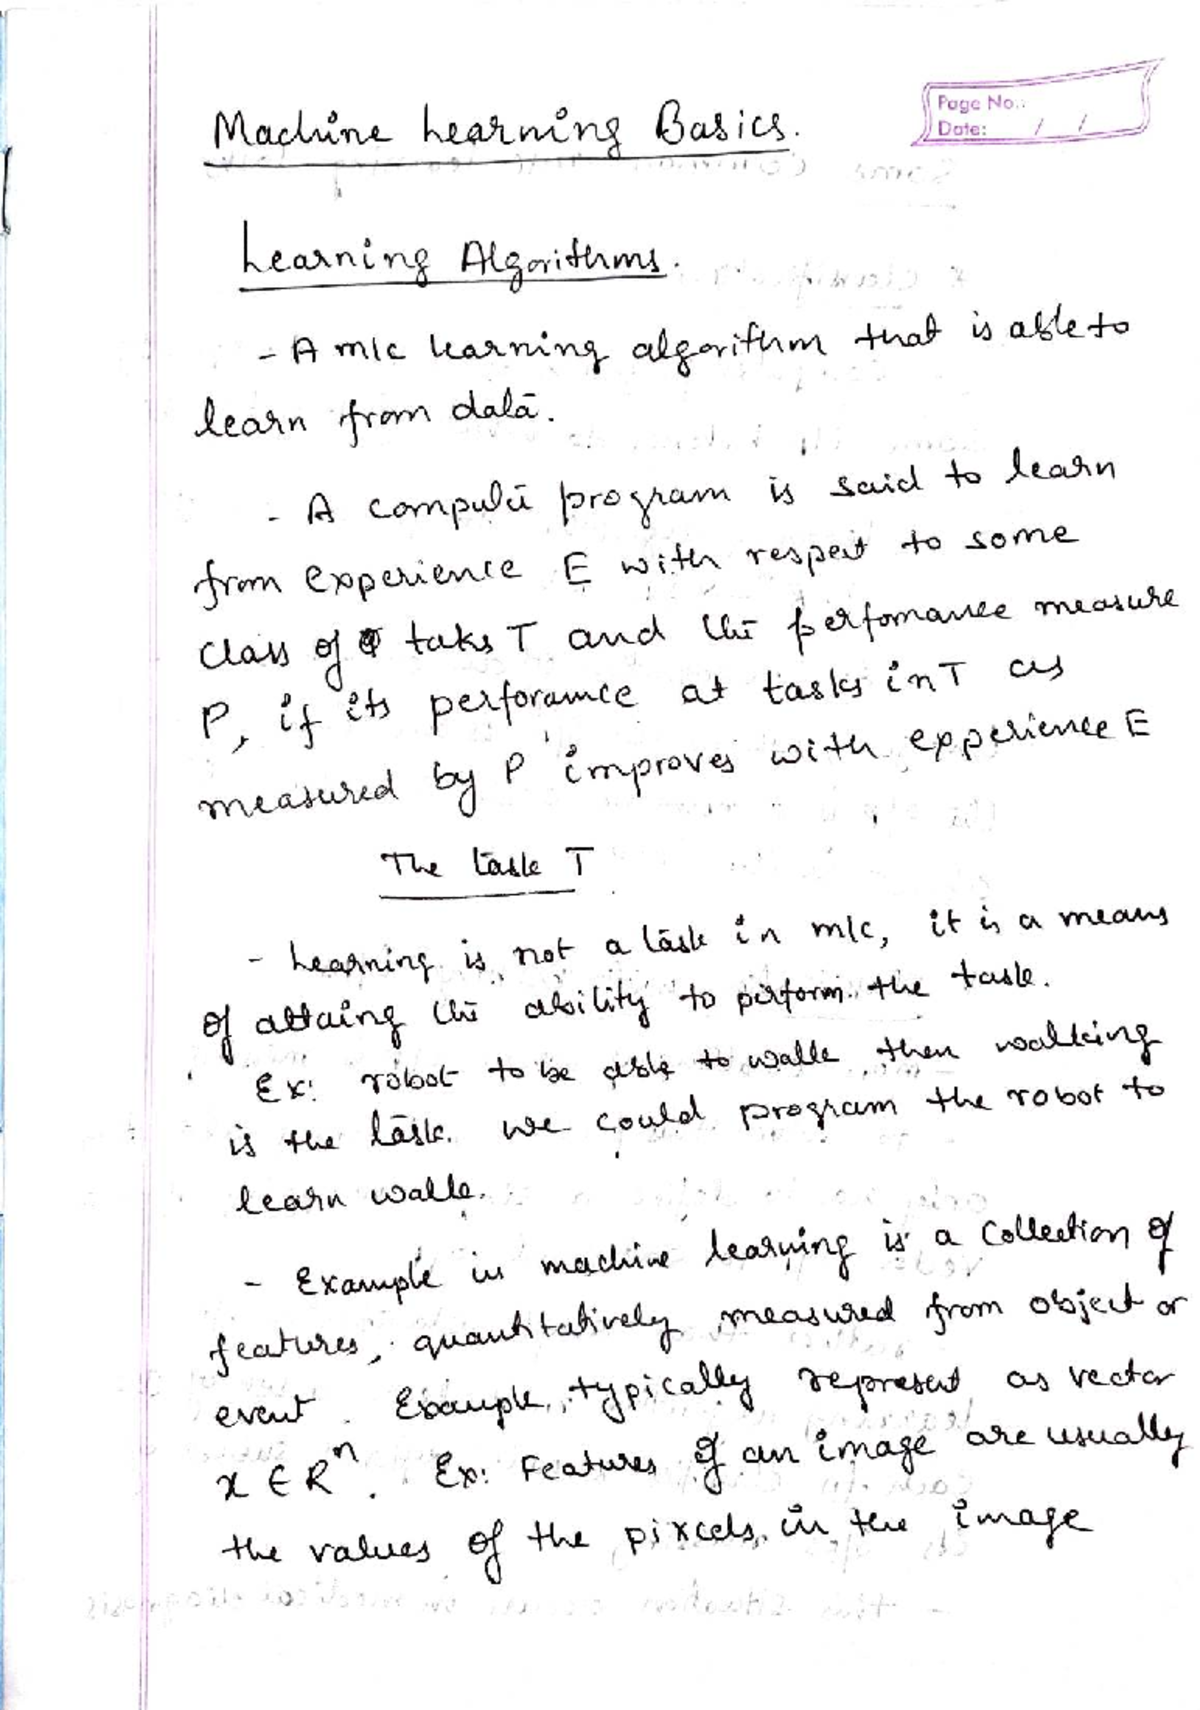 Page No.:
Date: / /
Machine Learning Basics.
Learning Algorithms.
- A m/c learning algorithm that is able to
learn from data.
- A computer program is said to learn
from experience E with respect to some
class of taks T and the perfomance measure
P, if its perforamce at tasks in T as
measured by P improves with experience E
The task T
- Learning is not a task in m/c, it is a means
of attaing the ability to perform the task.
Ex: robot to be able to walk then walking
is the task. we could program the robot to
learn walk.
- Example in machine learning is a collection of
features, quantitatively measured from object or
event. Example, typically represent as vector
x ∈ Rⁿ. Ex: Features of an image are usually
the values of the pixcels in the image